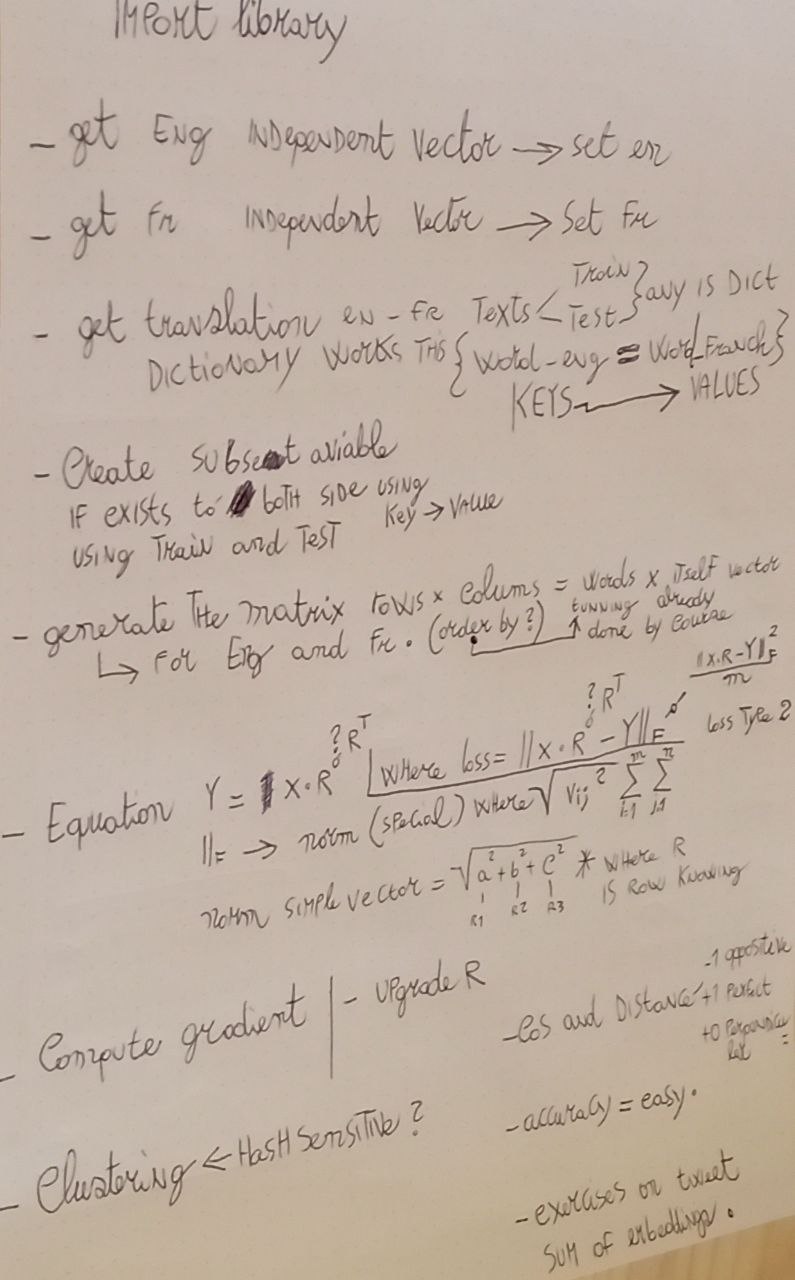 IMPORT library
- get ENG INDEPENDENT vector → set en
- get Fr INDEPENDENT Vector → Set Fr
- get translation EN - FR TEXTS < Train Test } any IS DICT
DICTIONARY WORKS THIS { Word-eng = Word_French }
KEYS → VALUES
- Create SUBset aviable
IF EXISTS to BOTH SIDE USING
USING TRAIN and TEST Key → VALUE
- generate THE matrix rows x colums = words x ITself vector
↳ For Eng and Fr. (order by?) ↑ running already
done by course
- Equation Y = X·R ? R^T | WHERE loss = ||X·R ? R^T - Y||_F
||X·R-Y||²_F / m loss Type 2
||_F → norm (special) WHERE √ Vij² Σ i=1 m Σ j=1 n
norm simple vector = √a²+b²+c² * WHERE R
R1 R2 R3 IS ROW KNOWING
- Compute gradient | - UPgrade R
- Cos and DISTANCE -1 oppositive
+1 perfect
+0
- Clustering ← HASH SENSITIVE?
- accuracy = easy.
- exercises on tweet
SUM OF embeddings.